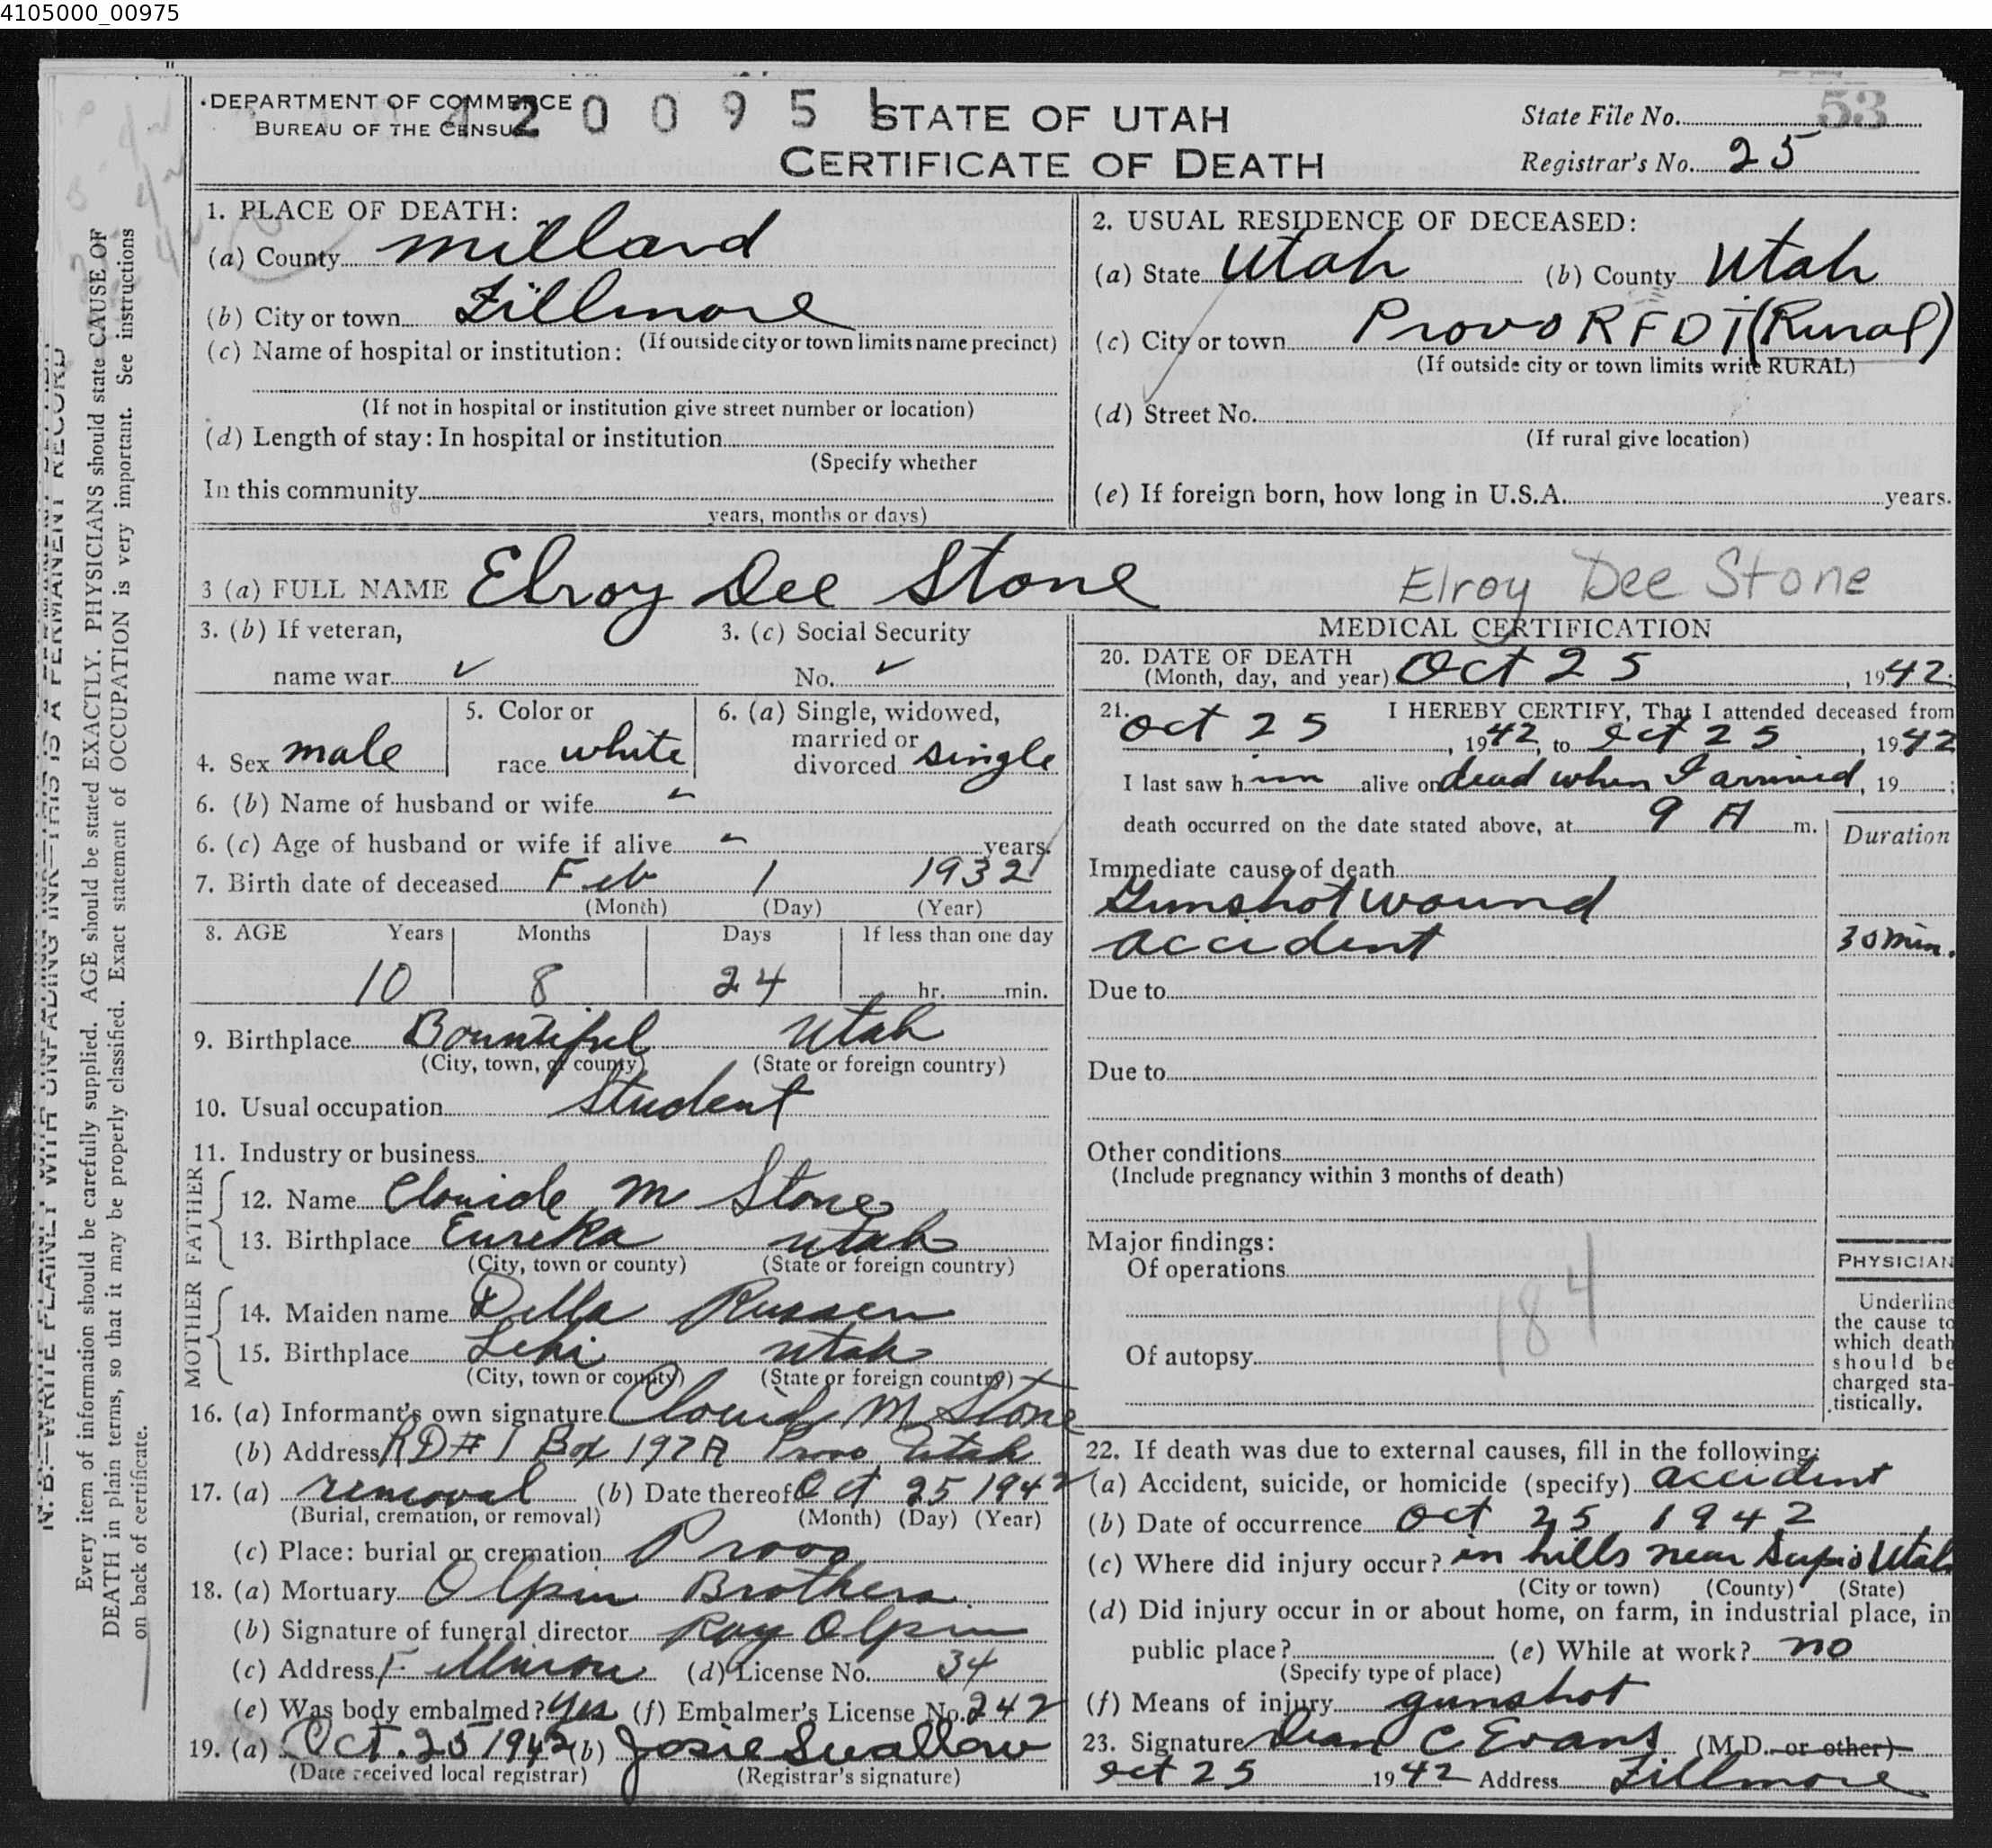 4105000_00975
DEPARTMENT OF COMMERCE
BUREAU OF THE CENSUS
2 0 0 9 5
STATE OF UTAH
CERTIFICATE OF DEATH
State File No. 53
Registrar's No. 25
1. PLACE OF DEATH:
(a) County Millard
(b) City or town Fillmore
(If outside city or town limits name precinct)
(c) Name of hospital or institution:
(If not in hospital or institution give street number or location)
(d) Length of stay: In hospital or institution
(Specify whether
In this community
years, months or days)
2. USUAL RESIDENCE OF DECEASED:
(a) State Utah (b) County Utah
(c) City or town Provo RFD 1 (Rural)
(If outside city or town limits write RURAL)
(d) Street No.
(If rural give location)
(e) If foreign born, how long in U.S.A. years.
3 (a) FULL NAME Elroy Dee Stone Elroy Dee Stone
3. (b) If veteran,
name war ✓
3. (c) Social Security
No. ✓
4. Sex male
5. Color or
race white
6. (a) Single, widowed,
married or
divorced single
6. (b) Name of husband or wife
6. (c) Age of husband or wife if alive years.
7. Birth date of deceased Feb 1 1932
(Month) (Day) (Year)
8. AGE Years Months Days If less than one day
10 8 24 hr. min.
9. Birthplace Bountiful Utah
(City, town, or county) (State or foreign country)
10. Usual occupation Student
11. Industry or business
FATHER
12. Name Clouide M Stone
13. Birthplace Eureka Utah
(City, town or county) (State or foreign country)
MOTHER
14. Maiden name Della
15. Birthplace Lehi Utah
(City, town or county) (State or foreign country)
16. (a) Informant's own signature M Stone
(b) Address RD # 1 Box 197A Provo Utah
17. (a) removal (b) Date thereof Oct 25 1942
(Burial, cremation, or removal) (Month) (Day) (Year)
(c) Place: burial or cremation Provo
18. (a) Mortuary Olpin Brothers
(b) Signature of funeral director Roy Olpin
(c) Address Fillmore (d) License No. 34
(e) Was body embalmed? Yes (f) Embalmer's License No. 242
19. (a) Oct. 25 1942 (b) Josie Swallow
(Date received local registrar) (Registrar's signature)
MEDICAL CERTIFICATION
20. DATE OF DEATH
(Month, day, and year) Oct 25, 1942;
21. I HEREBY CERTIFY, That I attended deceased from
Oct 25, 1942, to Oct 25, 1942
I last saw him alive on dead when I arrived, 19 ;
death occurred on the date stated above, at 9 A m.
Duration
Immediate cause of death
Gunshot wound
accident 30 min.
Due to
Due to
Other conditions
(Include pregnancy within 3 months of death)
Major findings:
Of operations
184
Of autopsy
PHYSICIAN
Underline
the cause to
which death
should be
charged sta-
tistically.
22. If death was due to external causes, fill in the following:
(a) Accident, suicide, or homicide (specify) accident
(b) Date of occurrence Oct 25 1942
(c) Where did injury occur? in hills near Scipio Utah
(City or town) (County) (State)
(d) Did injury occur in or about home, on farm, in industrial place, in
public place? (e) While at work? no
(Specify type of place)
(f) Means of injury gunshot
23. Signature Dean C Evans (M.D. or other)
Oct 25 1942 Address Fillmore
N. B.—WRITE PLAINLY WITH UNFADING INK—THIS IS A PERMANENT RECORD
Every item of information should be carefully supplied. AGE should be stated EXACTLY. PHYSICIANS should state CAUSE OF
DEATH in plain terms, so that it may be properly classified. Exact statement of OCCUPATION is very important. See instructions
on back of certificate.